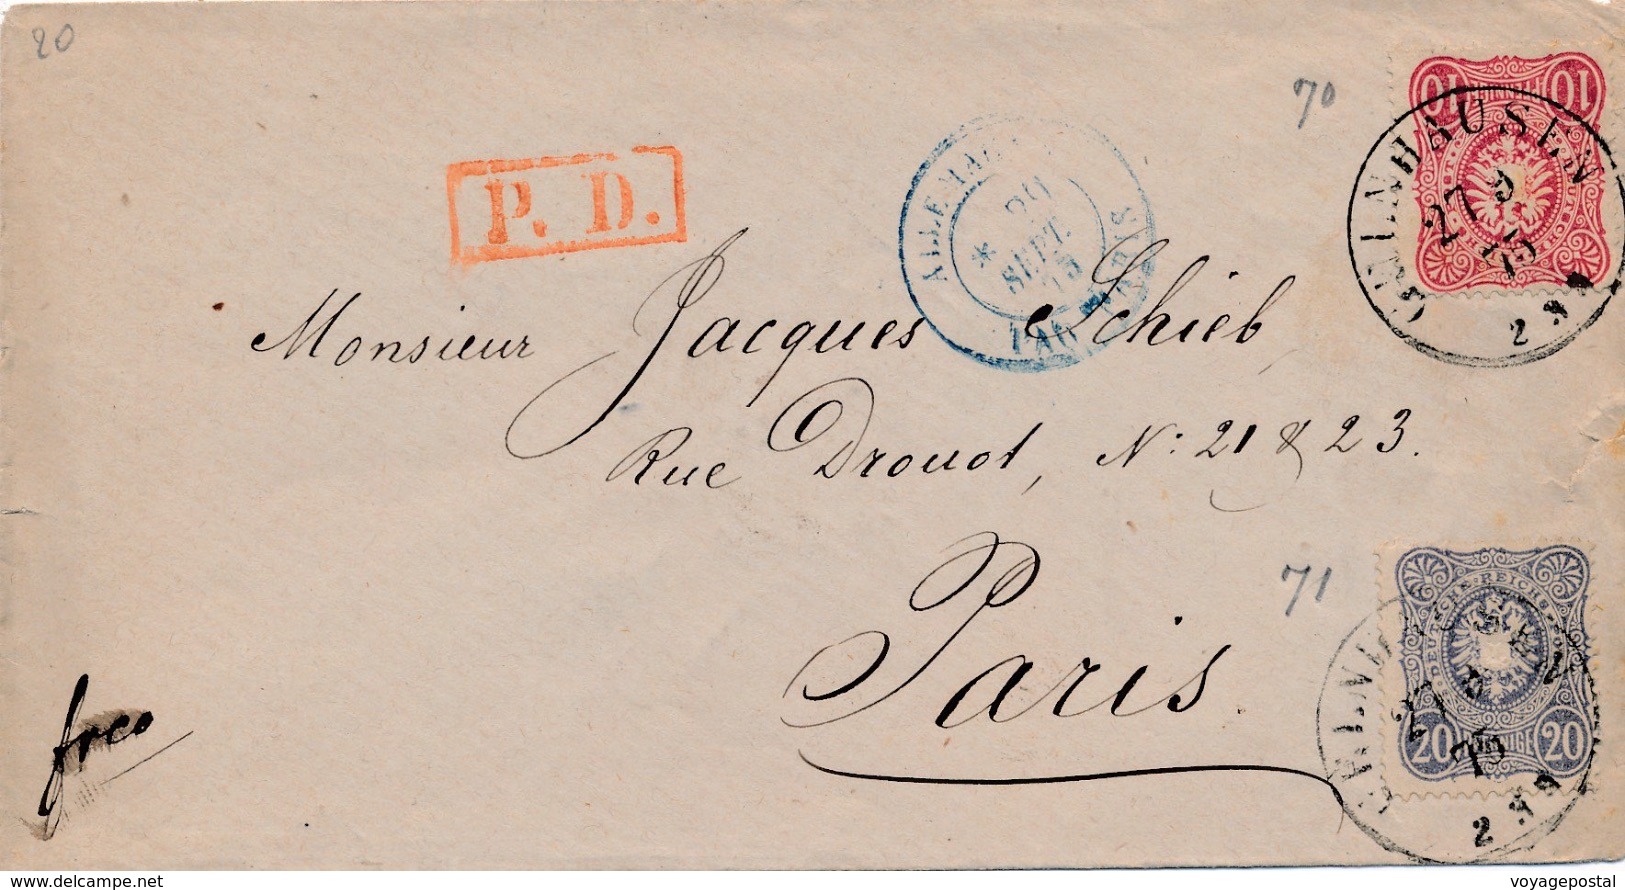 20
70
10 10
PFENNIGE
GELNHAUSEN
27 9
75
P. D.
ALLEMAGNE
SEPT.
75
PAR PARIS
Monsieur Jacques Schieb,
Rue Drouot, N: 21 & 23.
Paris
71
DEUTSCHE REICHS-POST
GELNHAUSEN
27 9
75
20 PFENNIGE 20
frco
www.delcampe.net
voyagepostal